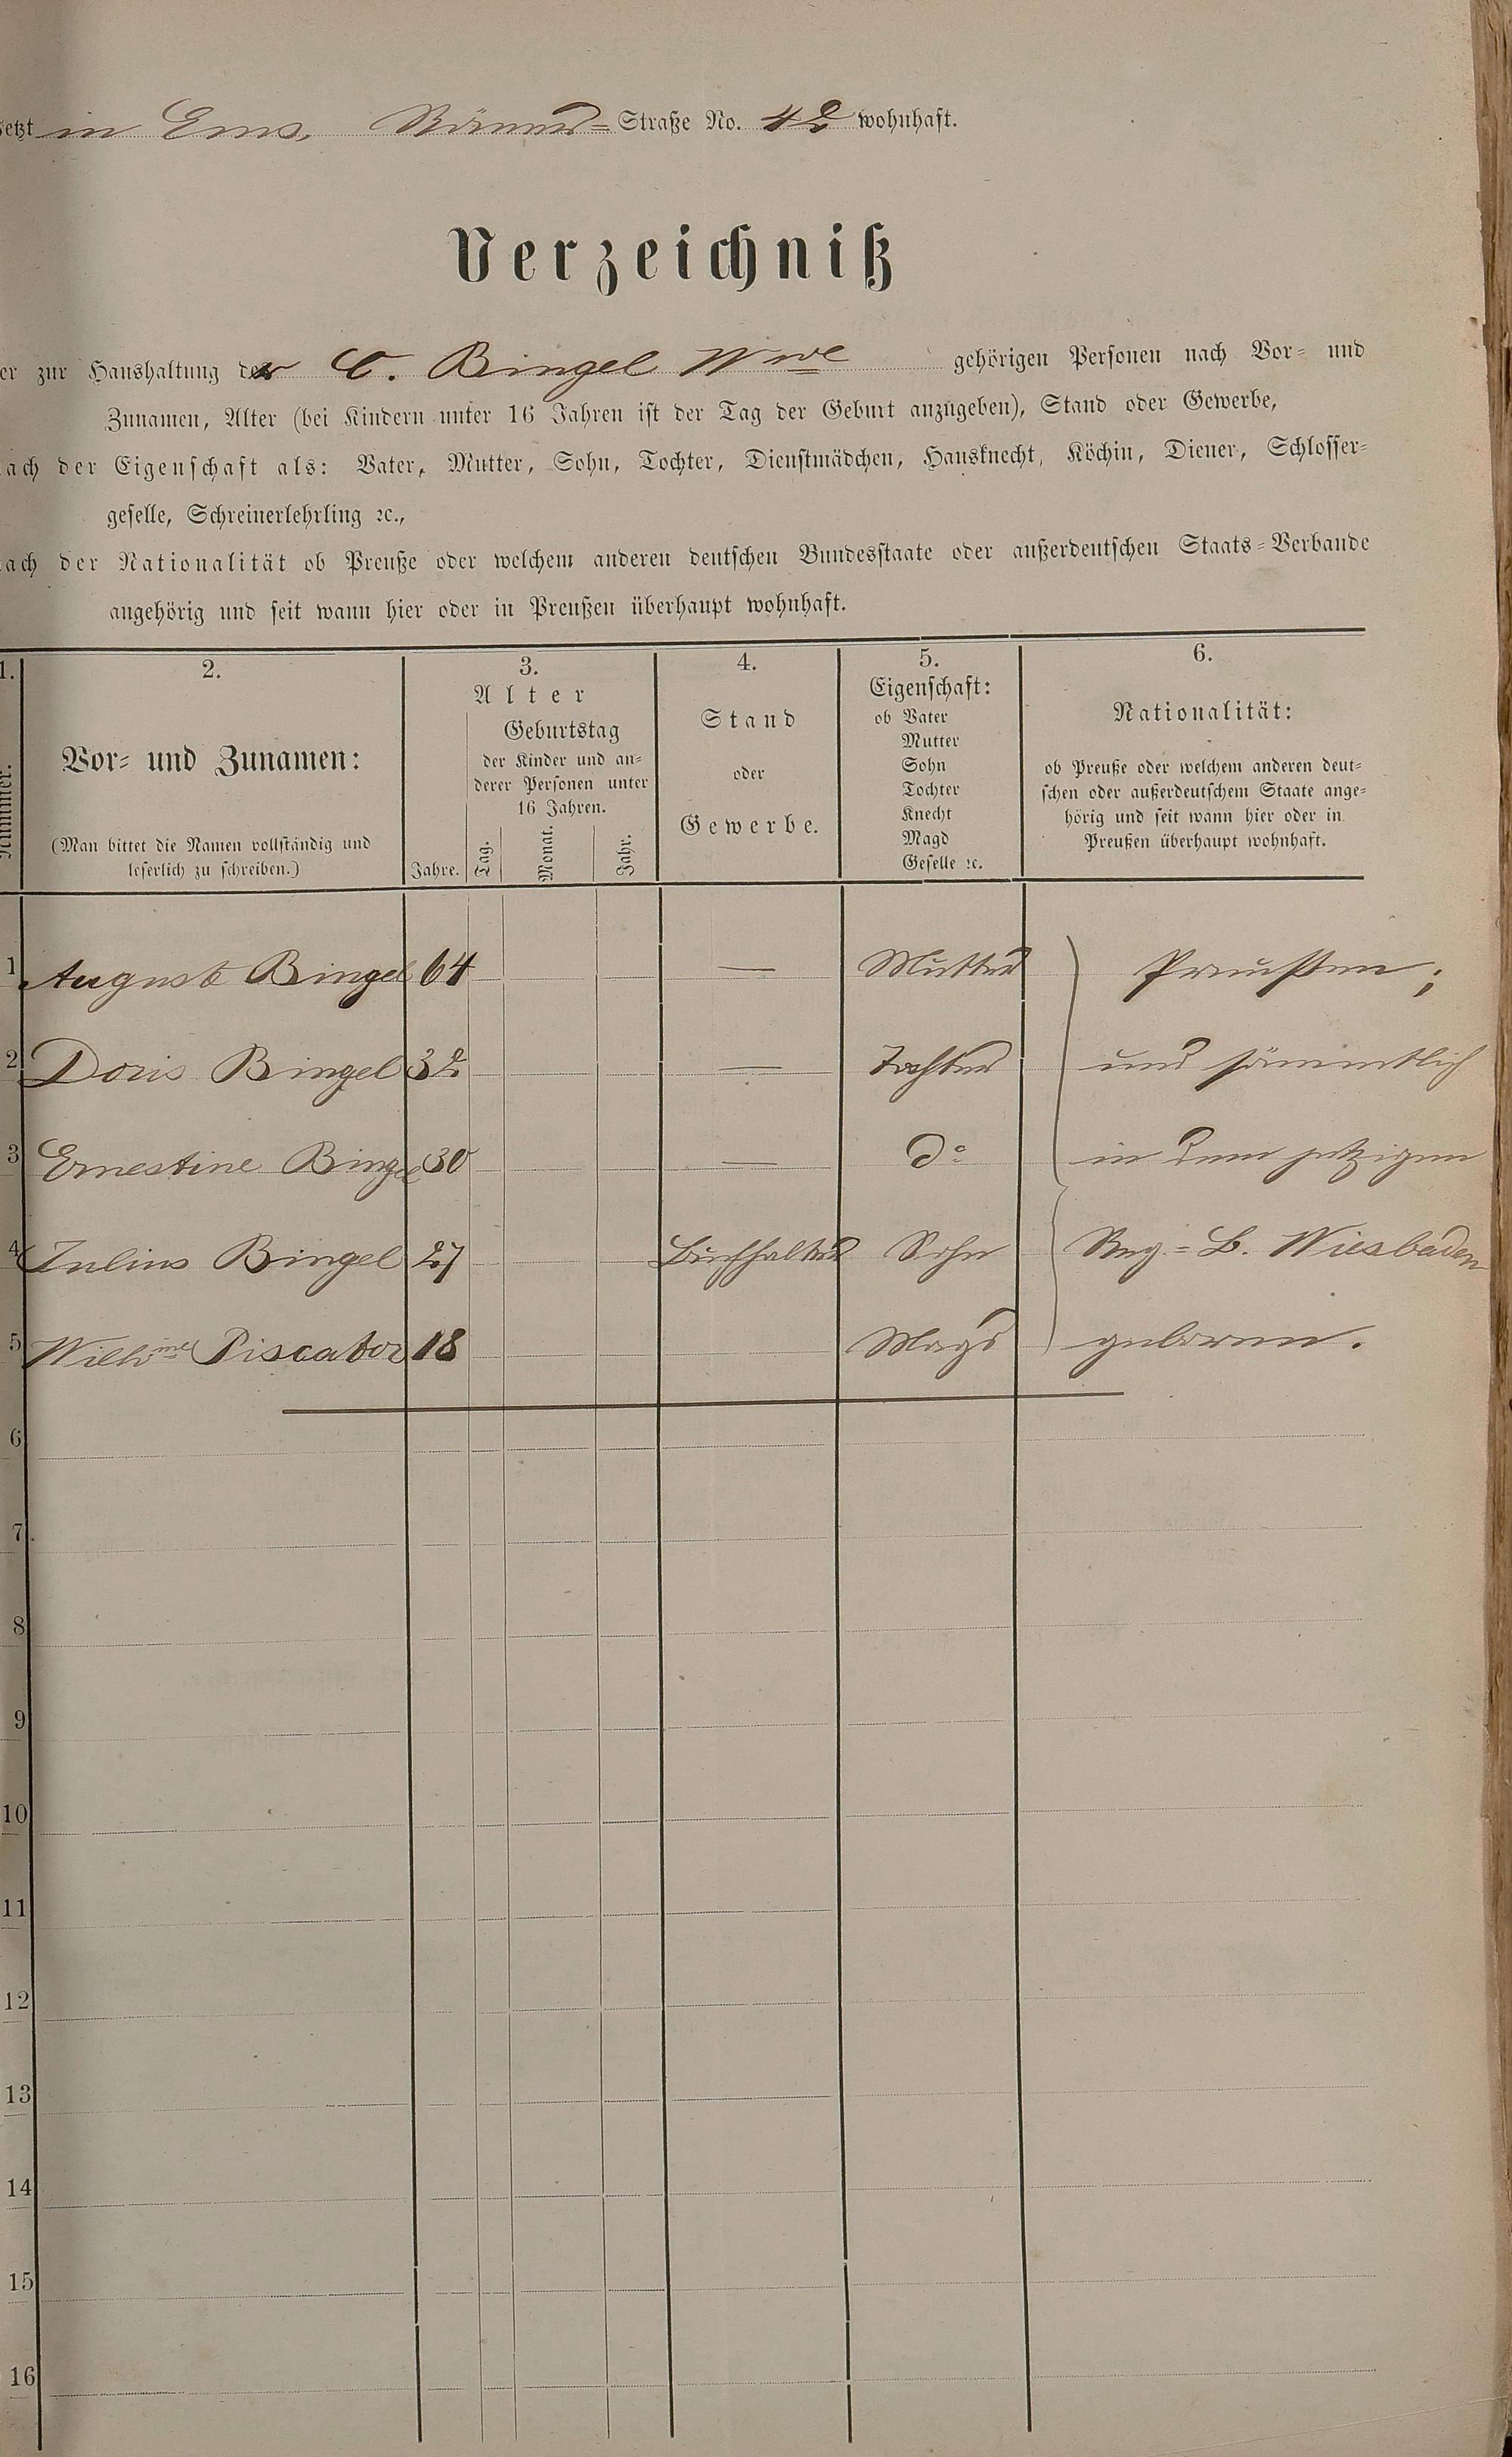 jetzt in Ems, Römer-Straße No. 42 wohnhaft.
Verzeichniß
der zur Haushaltung der C. Bingel Wwe gehörigen Personen nach Vor- und
Zunamen, Alter (bei Kindern unter 16 Jahren ist der Tag der Geburt anzugeben), Stand oder Gewerbe,
nach der Eigenschaft als: Vater, Mutter, Sohn, Tochter, Dienstmädchen, Hausknecht, Köchin, Diener, Schlosser-
geselle, Schreinerlehrling ꝛc.,
nach der Nationalität ob Preuße oder welchem anderen deutschen Bundesstaate oder außerdeutschen Staats-Verbande
angehörig und seit wann hier oder in Preußen überhaupt wohnhaft.
1. 2. 3. 4. 5. 6.
Nummer.
Vor- und Zunamen:
(Man bittet die Namen vollständig und
leserlich zu schreiben.)
Alter
Jahre.
Geburtstag
der Kinder und an-
derer Personen unter
16 Jahren.
Tag. Monat. Jahr.
Stand
oder
Gewerbe.
Eigenschaft:
ob Vater
Mutter
Sohn
Tochter
Knecht
Magd
Geselle ꝛc.
Nationalität:
ob Preuße oder welchem anderen deut-
schen oder außerdeutschem Staate ange-
hörig und seit wann hier oder in
Preußen überhaupt wohnhaft.
1 August Bingel 64 — Mutter Preußen;
2 Doris Bingel 32 — Tochter und sämmtlich
3 Ernestine Bingel 30 — do in dem jetzigen
4 Julius Bingel 27 Buchhalter Sohn Reg-B. Wiesbaden
5 Wilhme Piscator 18 Magd geboren.
6
7
8
9
10
11
12
13
14
15
16